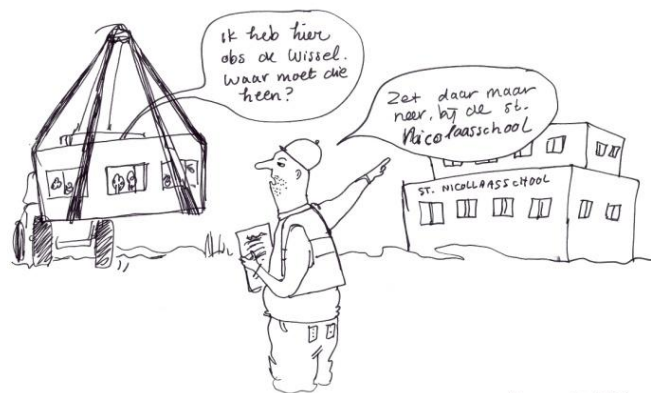 ik heb hier
obs de Wissel.
Waar moet die
heen?
Zet daar maar
neer, bij de st.
Nicolaasschool
ST. NICOLLAASSCHOOL